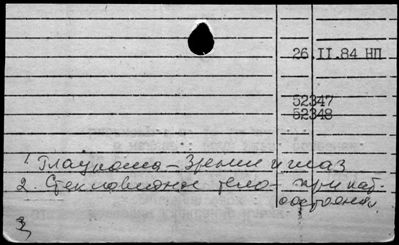 26 II.84 НП
52347
52348
1. Глаукома – Зрение и глаз
2. Стекловидное тело – при